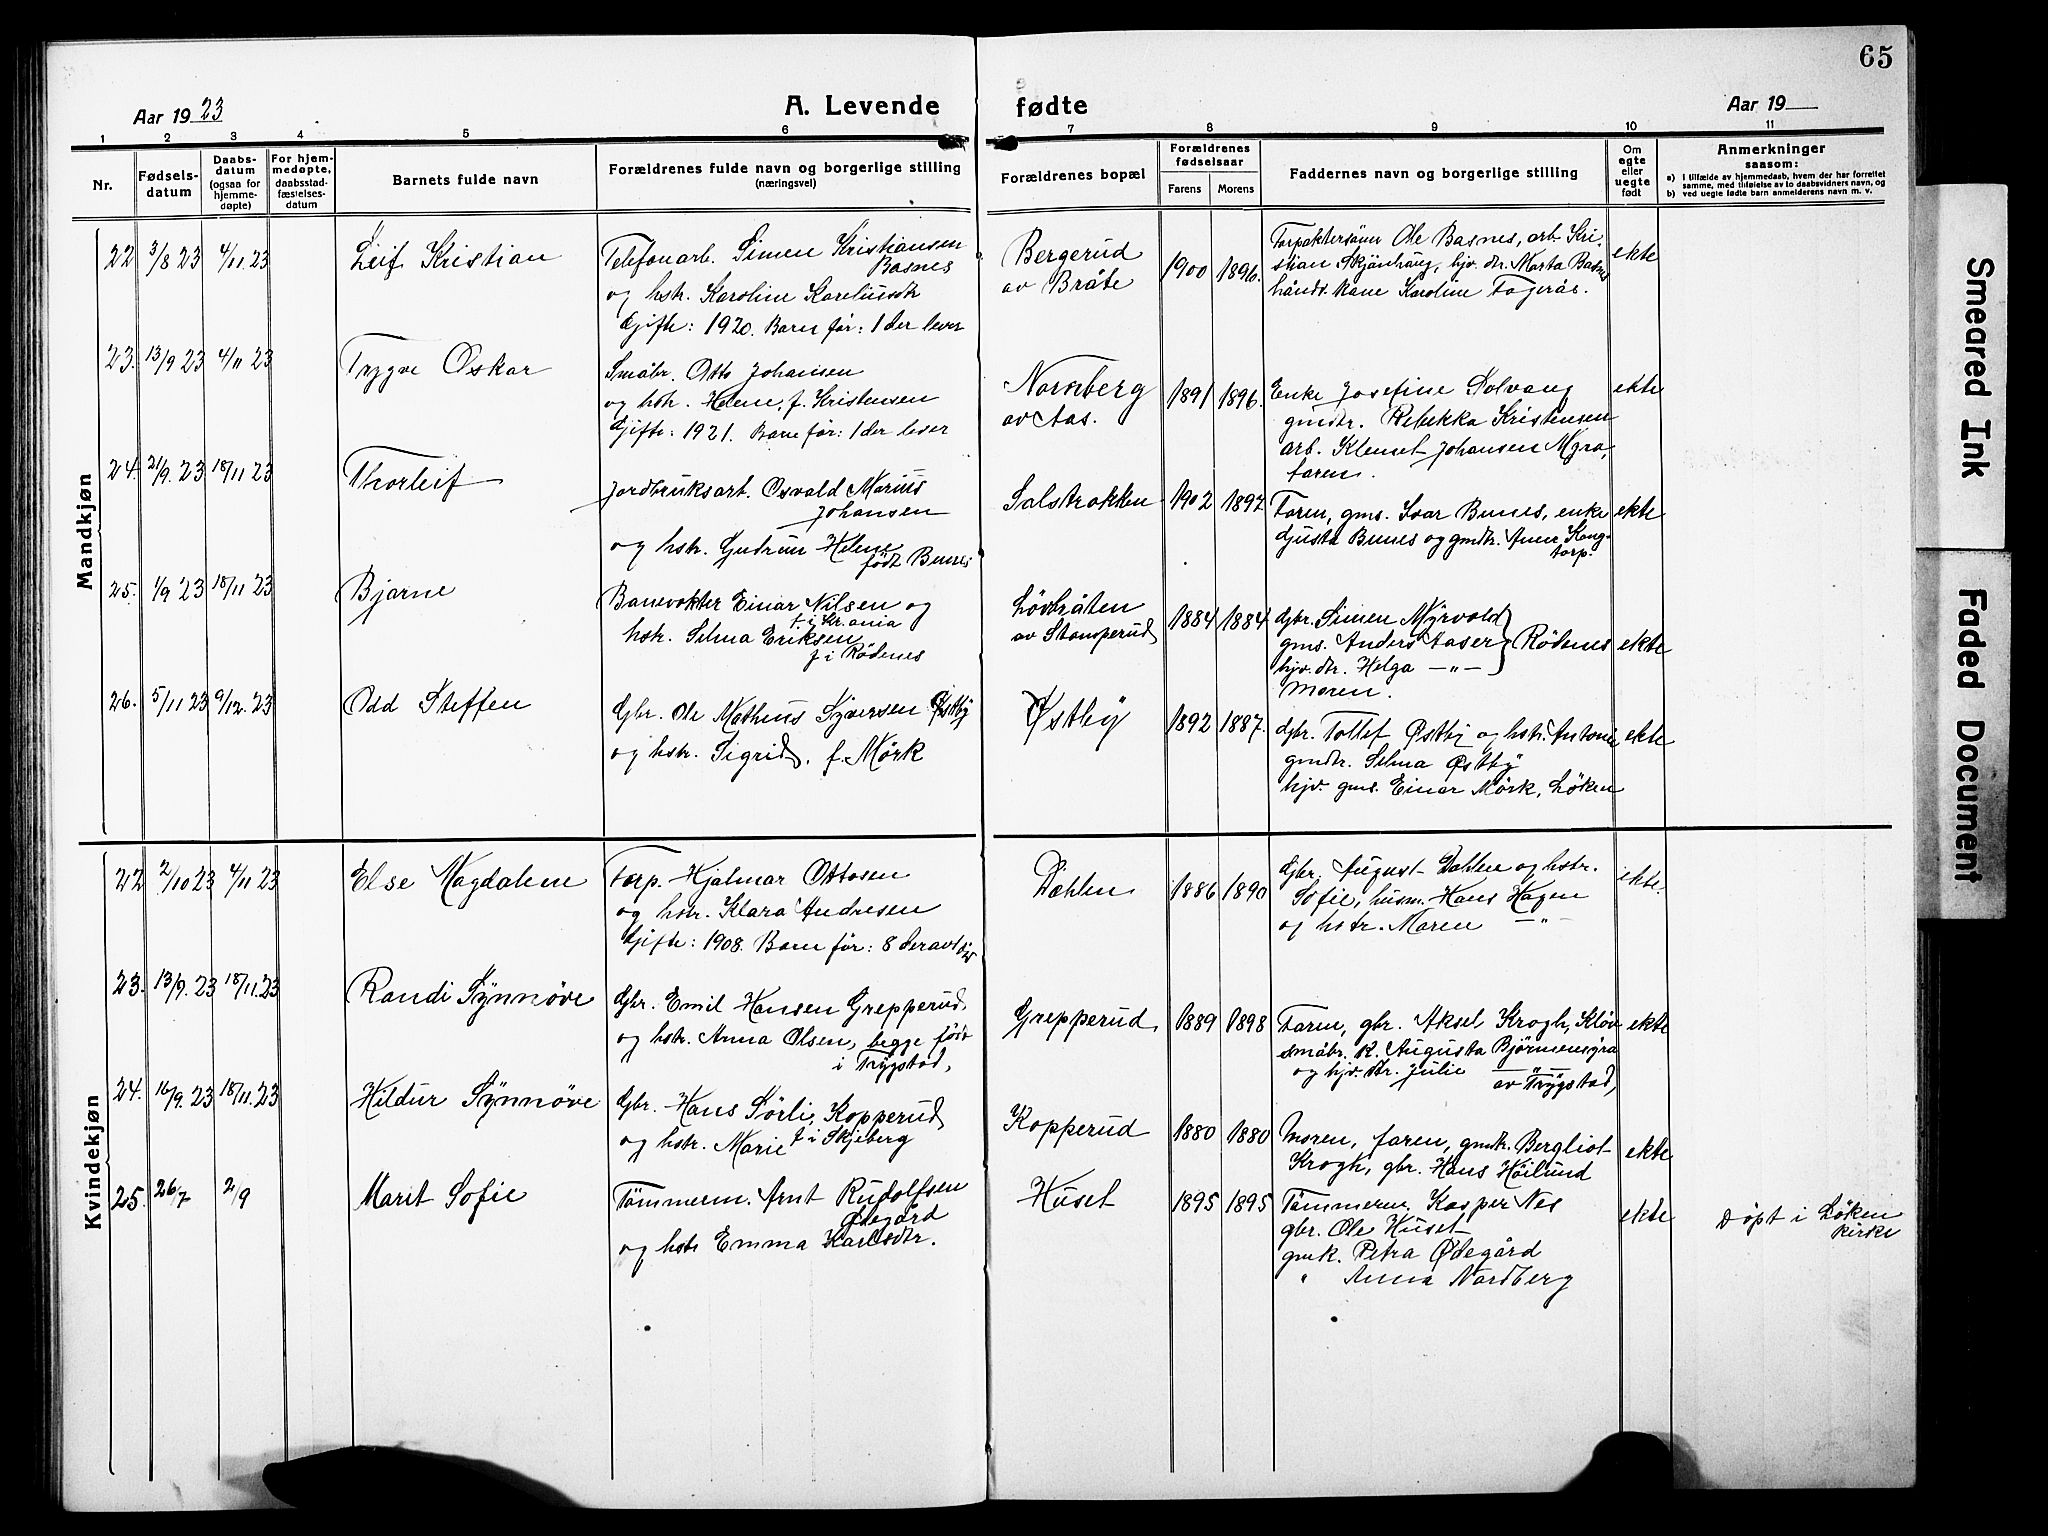 65
Aar 1923
A. Levende fødte
Aar 19
1 2 3 4 5 6 7 8 9 10 11
Nr.
Fødsels-
datum
Daabs-
datum
(ogsaa for
hjemme-
døpte)
For hjem-
medøpte,
daabsstad-
fæstelses-
datum
Barnets fulde navn
Forældrenes fulde navn og borgerlige stilling
(næringsvei)
Forældrenes bopæl
Forældrenes
fødselsaar
Farens Morens
Faddernes navn og borgerlige stilling
Om
egte
eller
uegte
født
Anmerkninger
saasom:
a) I tilfælde av hjemmedaab, hvem der har forrettet
samme, med tilføielse av to daabsvidners navn, og
b) ved uegte fødte barn anmelderens navn m. v.
Mandkjøn
22 3/8 23 4/11 23
Leif Kristian
Telefonarb. Simen Kristiansen
Basnes
og hstr. Karoline Kareliusdtr
Gift: 1920. Barn før: 1 der lever
Bergerud
av Bråte
1900 1896.
Ole Basnes, arb. Kri-
stian Skjønhaug, hjv. dtr. Marta Basnes
hånds. kone Karoline Fagerås.
ekte
23. 13/9 23 4/11 23
Trygve Oskar
Småbr. Otto Johansen
og hstr. Helene, f. Kristensen
Gift: 1921. Barn før: 1 der lever
av Aas.
1891 1896.
Enke Josefine Solvang
gmdtr. Rebekka Kristensen
arb. Klemet Johansen Myra,
faren.
ekte
24. 21/9. 23 18/11 23
Thorleif
Jordbruksarb. Osvald Marius
Johansen
og hstr. Gudrun Helene
født Bunes
Solstrokken
1902 1897.
Faren, gms. Ivar Bunes, enke
Gusta Bunes og gmdtr. Anne Kong-
torp.
ekte
25. 1/9 23 18/11 23
Bjarne
Banevokter Einar Nilsen og
f. i Kr.ania
hstr. Selma Eriksen
f. i Rødenes
Lövbråten
av Stomperud
1884 1884
Gbr. Simen Myrvold
gms. Anders Aaser
hjv. dtr. Helga — „ —
Rödenes
Moren.
ekte
26. 5/11 23 9/12. 23
Odd Steffen
Gbr. Ole Matheus Syversen Østby
og hstr. Sigrid, f. Mörk
Østby
1892 1887.
Gbr. Tollef Østby og hstr. Antonie
gmdtr. Selma Østby
hjv. gms. Einar Mörk, Löken
ekte
Kvindekjøn
22 2/10 23 4/11 23
Else Magdalene
Torp. Hjalmar Ottosen
og hstr. Klara Andresen
Gift: 1908. Barn før: 8 derav 1 död
Dahlen
1886 1890
Gbr. August Dahlen og hstr.
Sofie, husm. Hans Hagen
og hstr. Maren — „ —
ekte.
23. 13/9. 23 18/11. 23
Randi Synnöve
Gbr. Emil Hansen Grepperud,
og hstr. Anna Olsen, begge født
i Trygstad,
Grepperud,
1889 1898
Faren, gbr. Aksel Krogh, Klöv
småbr. k. Augusta Björnemyra
og hjv. dtr. Julie — „ —
av Trygstad,
ekte
24. 16/9. 23 18/11. 23
Hildur Synnöve
Gbr. Hans Sörlie Kopperud
f. i Skjeberg
og hstr. Marie
Kopperud
1880 1880
Moren, faren, gmdtr. Bergliot
Krogh, gbr. Hans Höilund
ekte
25. 26/7 2/9
Marit Sofie
Tömmerm. Arnt Rudolfsen
Ødegård
og hstr Emma Karlsdtr.
Huset
1895 1895
Tömmerm. Kasper Nes
gbr. Ole Huset
gmk. Petra Ødegård
„ Anna Nordberg
ekte
Döpt i Löken
kirke
Smeared Ink
Faded Document